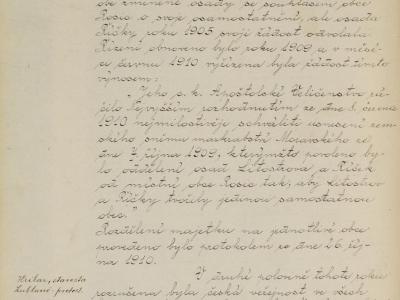 obě zmíněné osady se souhlasem obce
Rosic o svoje osamostatnění, ale osada
Říčky roku 1905 svoji žádost odvolala.
Řízení obnoveno bylo roku 1909 a v měsí-
ci červnu 1910 vyřízena byla žádost tímto
výnosem:
"Jeho c. k. Apoštolské Veličenstvo rá-
čilo Nejvyšším rozhodnutím ze dne 8. června
1910 nejmilostivěji schváliti usnesení zem-
ského sněmu markrabství Moravského ze
dne 7. října 1909, kterýmžto povoleno by-
lo oddělení osad Litostrova a Říček
od místní obce Rosic tak, aby Litostrov
a Říčky tvořily jedinou samostatnou
obec."
Rozdělení majetku na jednotlivé obce
provedeno bylo protokolem ze dne 26. říj-
na 1910.
V druhé polovině tohoto roku
rozrušena byla česká veřejnost ve všech
Hribar, starosta
Lublaně - potvrz.